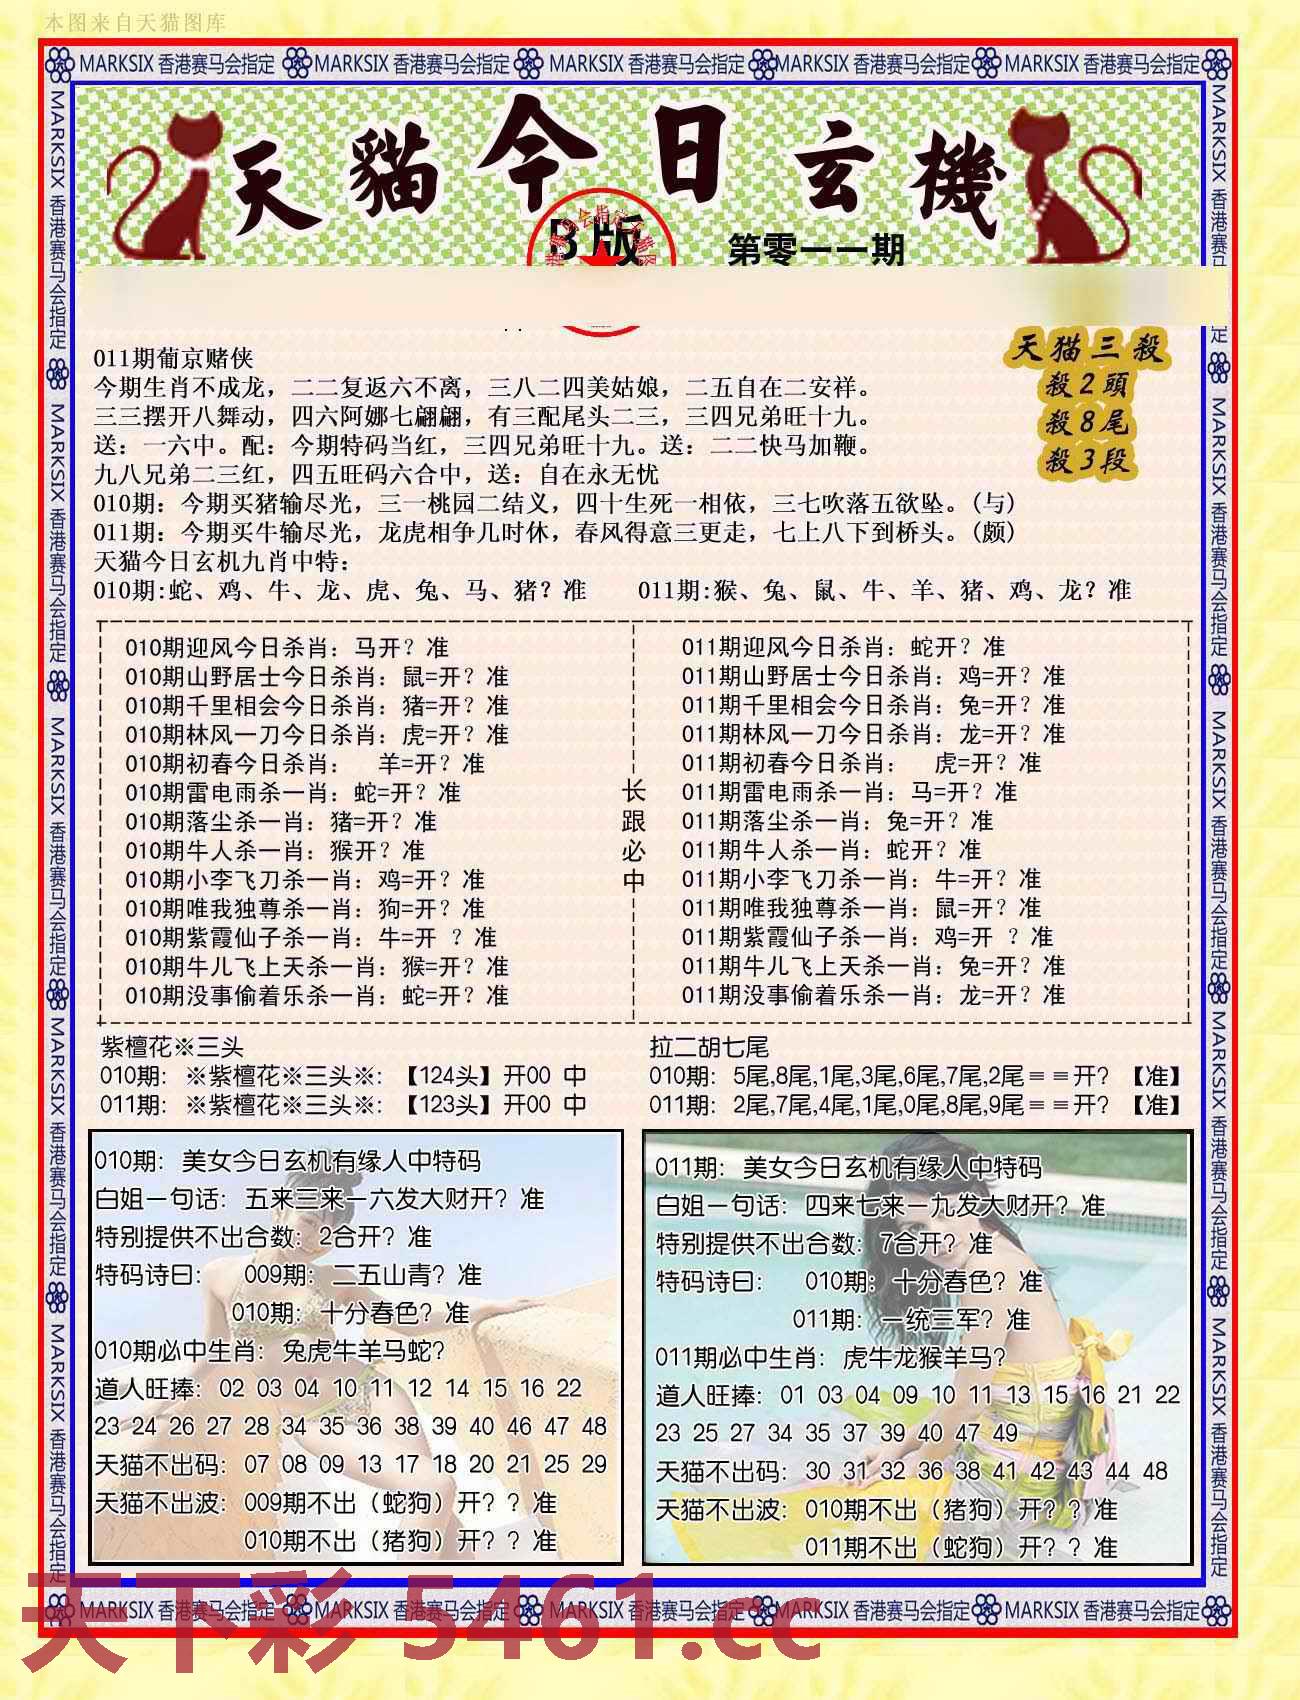 本图来自天猫图库
MARKSIX 香港赛马会指定 MARKSIX 香港赛马会指定 MARKSIX 香港赛马会指定 MARKSIX 香港赛马会指定 MARKSIX 香港赛马会指定
天貓今日玄機
B版
第零一一期
天猫三殺
殺2頭
殺8尾
殺3段
011期葡京赌侠
今期生肖不成龙，二二复返六不离，三八二四美姑娘，二五自在二安祥。
三三摆开八舞动，四六阿娜七翩翩，有三配尾头二三，三四兄弟旺十九。
送：一六中。配：今期特码当红，三四兄弟旺十九。送：二二快马加鞭。
九八兄弟二三红，四五旺码六合中，送：自在永无忧
010期：今期买猪输尽光，三一桃园二结义，四十生死一相依，三七吹落五欲坠。(与)
011期：今期买牛输尽光，龙虎相争几时休，春风得意三更走，七上八下到桥头。(颇)
天猫今日玄机九肖中特：
010期:蛇、鸡、牛、龙、虎、兔、马、猪？准 011期:猴、兔、鼠、牛、羊、猪、鸡、龙？准
010期迎风今日杀肖：马开？准
010期山野居士今日杀肖：鼠=开？准
010期千里相会今日杀肖：猪=开？准
010期林风一刀今日杀肖：虎=开？准
010期初春今日杀肖： 羊=开？准
010期雷电雨杀一肖：蛇=开？准
010期落尘杀一肖：猪=开？准
010期牛人杀一肖：猴开？准
010期小李飞刀杀一肖：鸡=开？准
010期唯我独尊杀一肖：狗=开？准
010期紫霞仙子杀一肖：牛=开 ？准
010期牛儿飞上天杀一肖：猴=开？准
010期没事偷着乐杀一肖：蛇=开？准
长跟必中
011期迎风今日杀肖：蛇开？准
011期山野居士今日杀肖：鸡=开？准
011期千里相会今日杀肖：兔=开？准
011期林风一刀今日杀肖：龙=开？准
011期初春今日杀肖： 虎=开？准
011期雷电雨杀一肖：马=开？准
011期落尘杀一肖：兔=开？准
011期牛人杀一肖：蛇开？准
011期小李飞刀杀一肖：牛=开？准
011期唯我独尊杀一肖：鼠=开？准
011期紫霞仙子杀一肖：鸡=开 ？准
011期牛儿飞上天杀一肖：兔=开？准
011期没事偷着乐杀一肖：龙=开？准
紫檀花※三头
010期：※紫檀花※三头※：【124头】开00 中
011期：※紫檀花※三头※：【123头】开00 中
拉二胡七尾
010期：5尾,8尾,1尾,3尾,6尾,7尾,2尾≡≡开？【准】
011期：2尾,7尾,4尾,1尾,0尾,8尾,9尾≡≡开？【准】
010期：美女今日玄机有缘人中特码
白姐一句话：五来三来一六发大财开？准
特别提供不出合数：2合开？准
特码诗曰： 009期：二五山青？准
010期：十分春色？准
010期必中生肖：兔虎牛羊马蛇？
道人旺捧：02 03 04 10 11 12 14 15 16 22
23 24 26 27 28 34 35 36 38 39 40 46 47 48
天猫不出码：07 08 09 13 17 18 20 21 25 29
天猫不出波：009期不出（蛇狗）开？？准
010期不出（猪狗）开？？准
011期：美女今日玄机有缘人中特码
白姐一句话：四来七来一九发大财开？准
特别提供不出合数：7合开？准
特码诗曰： 010期：十分春色？准
011期：一统三军？准
011期必中生肖：虎牛龙猴羊马？
道人旺捧：01 03 04 09 10 11 13 15 16 21 22
23 25 27 34 35 37 39 40 47 49
天猫不出码：30 31 32 36 38 41 42 43 44 48
天猫不出波：010期不出（猪狗）开？？准
011期不出（蛇狗）开？？准
MARKSIX 香港赛马会指定 MARKSIX 香港赛马会指定 MARKSIX 香港赛马会指定 MARKSIX 香港赛马会指定 MARKSIX 香港赛马会指定
天下彩 5461.cc